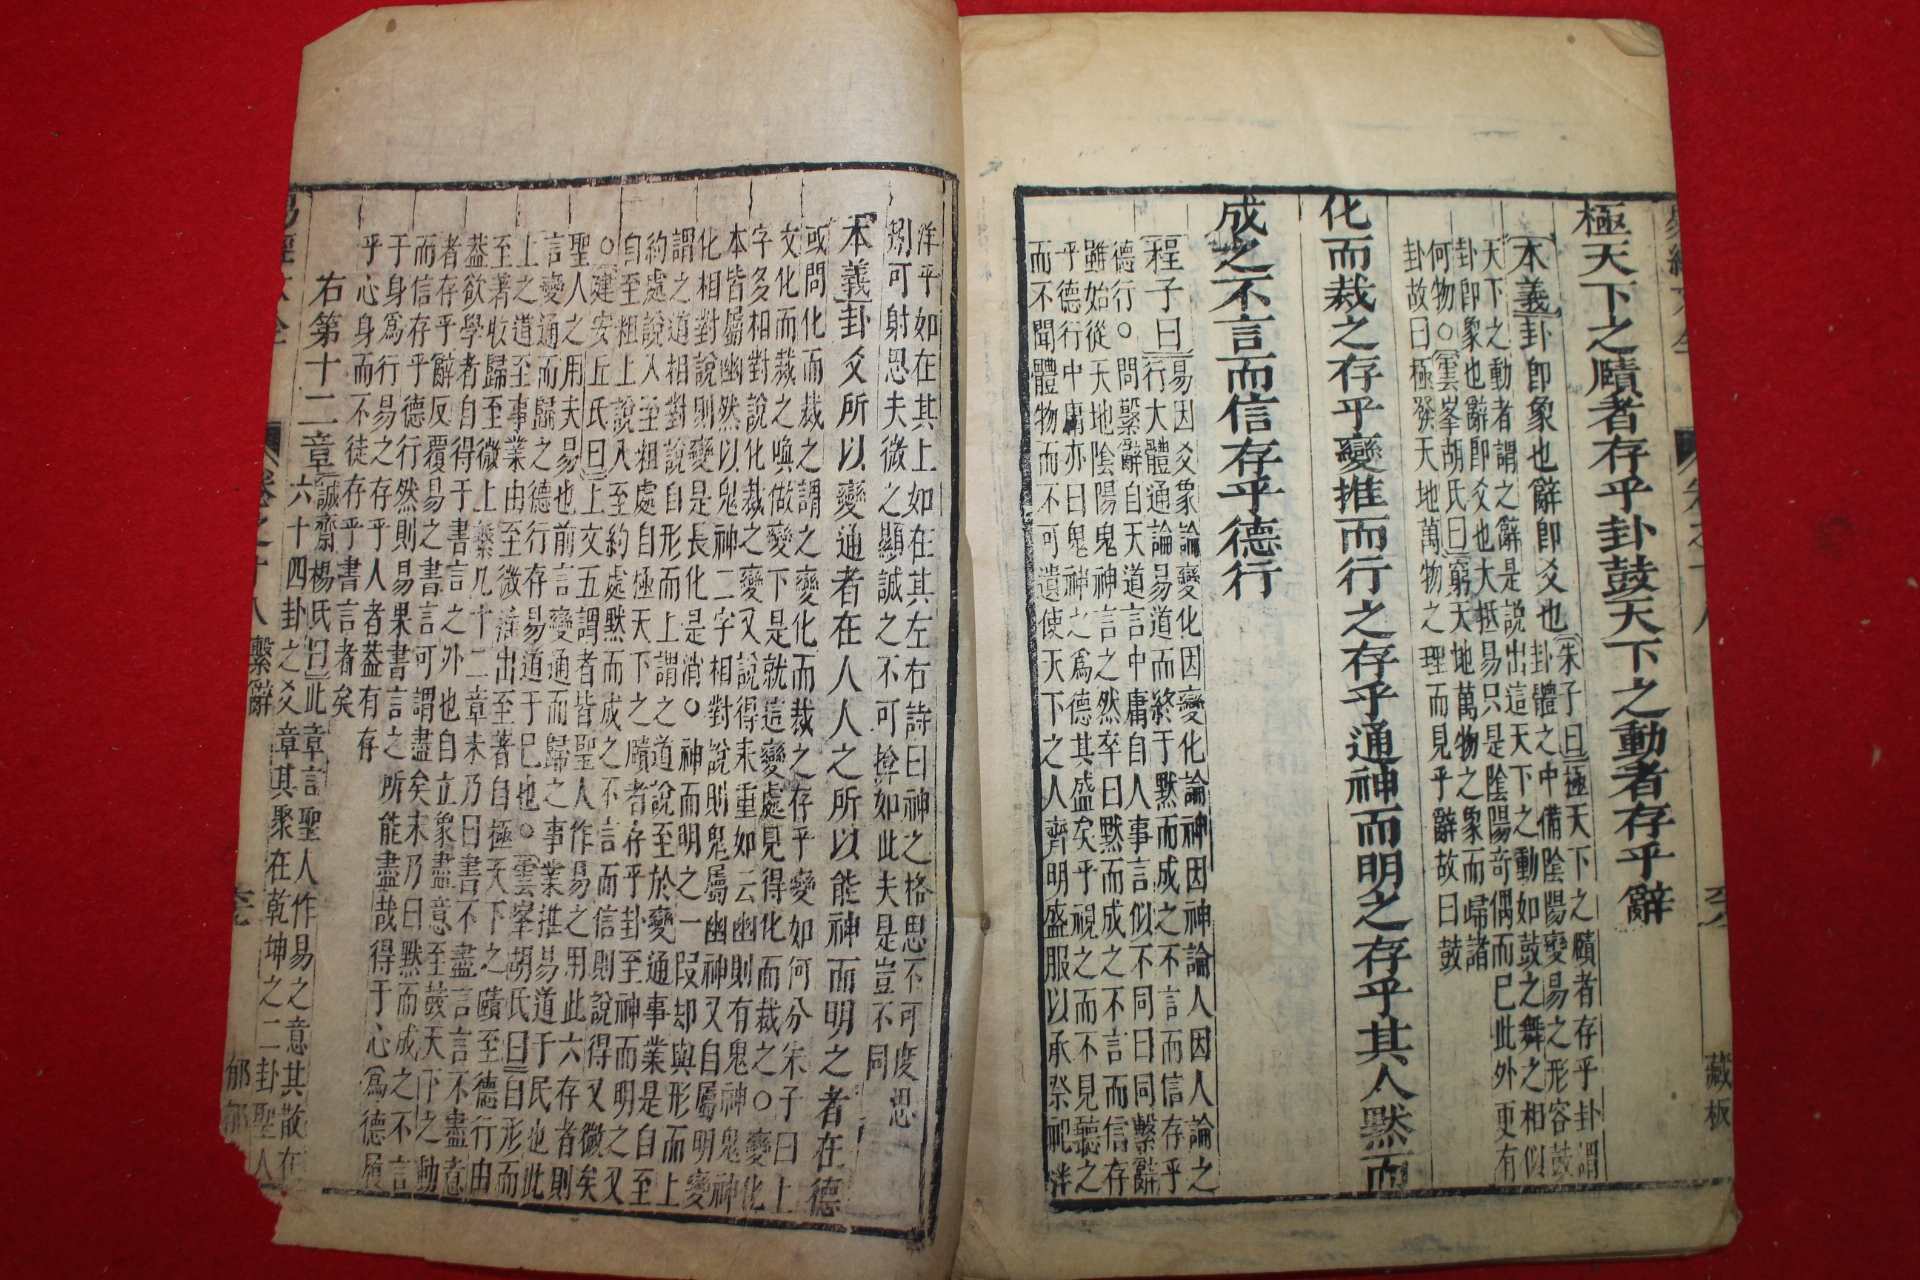 極天下之賾者存乎卦鼓天下之動者存乎辭
本義卦卽象也辭卽爻也
朱子曰極天下之賾者存乎卦謂
卦體之中備陰陽變易之形容鼓
天下之動者謂之辭是說出這天下之動如鼓之舞之相似
卦卽象也辭卽爻也大抵易只是陰陽奇偶而已此外更有
何物○雲峯胡氏曰窮天地萬物之象而歸諸
卦故曰極發天地萬物之理而見乎辭故曰鼓
化而裁之存乎變推而行之存乎通神而明之存乎其人黙而
成之不言而信存乎德行
程子曰易因爻象論變化因變化論神因神論人因人論之
行大體通論易道而終于黙而成之不言而信存乎
德行○問繫辭自天道言中庸自人事言似不同曰同繫辭
雖始從天地陰陽鬼神言之然卒曰黙而成之不言而信存
乎德行中庸亦曰鬼神之爲德其盛矣乎視之而不見聽之
而不聞體物而不可遺使天下之人齊明盛服以承祭祀洋
洋乎如在其上如在其左右詩曰神之格思不可度思
矧可射思夫微之顯誠之不可揜如此夫是豈不同
本義卦爻所以變通者在人人之所以能神而明之者在德
或問化而裁之謂之變化而裁之存乎變如何分朱子曰上
文化而裁之喚做變下是就這變處見得化而裁之○變化
字多相對說化裁之變又說得來重如云幽則有鬼神鬼神
本皆屬幽然以鬼神二字相對說則鬼屬幽神又自屬明變
化相對說則變是長化是消○神而明之一段却與形而上
謂之道相對說自形而上謂之道說至於變通事業是自至
約處說入至粗處自極天下之賾者存乎卦至神而明之又
自至粗上說入至約處黙而成之不言而信則說得又微矣
○建安丘氏曰上文五謂者皆聖人作易之用此六存者則
聖人之用夫易也前言變通而歸之事業推易道于民也此
言變通而歸之德行存易道于已也○雲峯胡氏曰自形而
上之道至事業由至微推出至著自極天下之賾至德行由
至著收歸至微上繫凡十二章末乃曰書不盡言言不盡意
葢欲學者自得于書言之外也自立象盡意至鼓天下之動
者存乎辭反覆易之書言可謂盡矣末乃曰黙而成之不言
而信存乎德行然則易果書言之所能盡哉得于心爲德履
于身爲行易之存乎人者葢有存
乎心身而不徒存乎書言者矣
右第十二章
誠齋楊氏曰此章言聖人作易之意其散在
六十四卦之爻章其聚在乾坤之二卦聖人
卷之十八 繫辭
藏板